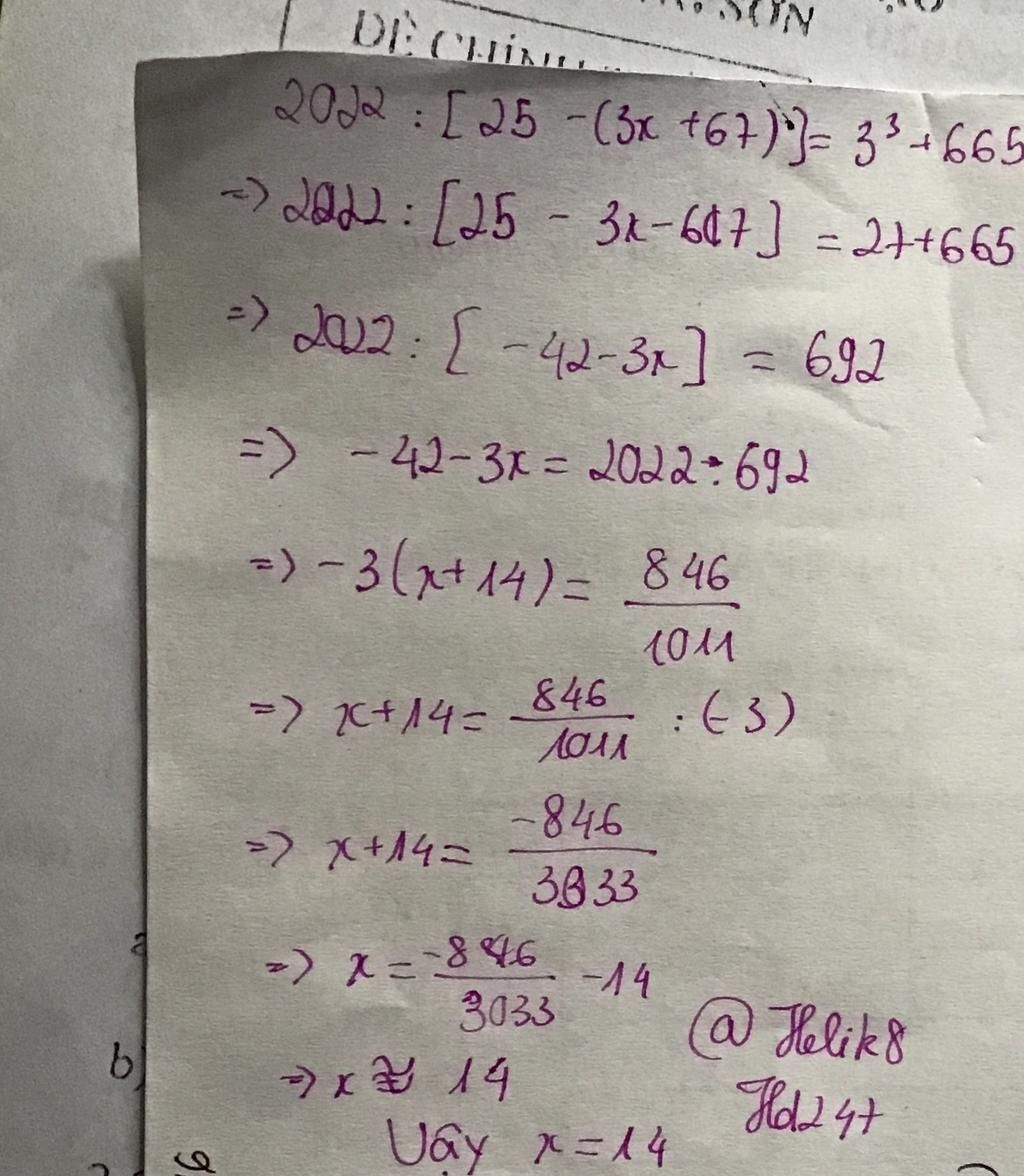 SƠN
ĐỀ CHÍNH
2022 : [ 25 - (3x + 67) ] = 3³ + 665
=> 2022 : [25 - 3x - 67] = 27 + 665
=> 2022 : [ - 42 - 3x ] = 692
=> - 42 - 3x = 2022 : 692
=> - 3(x + 14) = 846/1011
=> x + 14 = 846/1011 : (-3)
=> x + 14 = -846/3033
=> x = -846/3033 - 14
@ Helik8
=> x ≈ 14
Hd247
Vây x = 14
b)